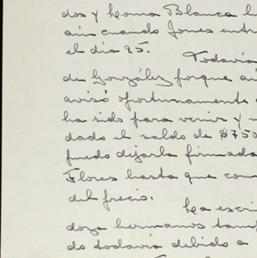 dos y Loma Blanca
aún cuando Jones
el día 25.
Todavía
de González porque
avisó oportunamente
ha sido para venir y
dado el saldo de $750
puedo dejarla firmada
Flores hasta que
del precio.
La
hermanos
do todavía debido a